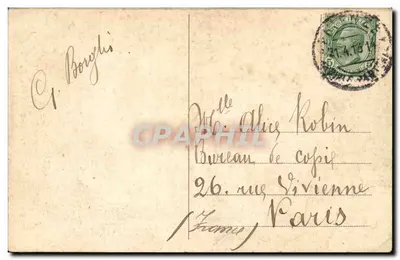 G. Borglio
Mlle Alice Robin
Bureau de copie
26. rue Vivienne
Paris
(France)